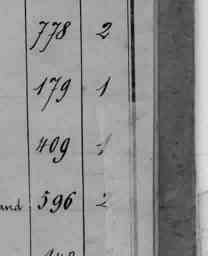 778 2
179 1
409
and 596 2